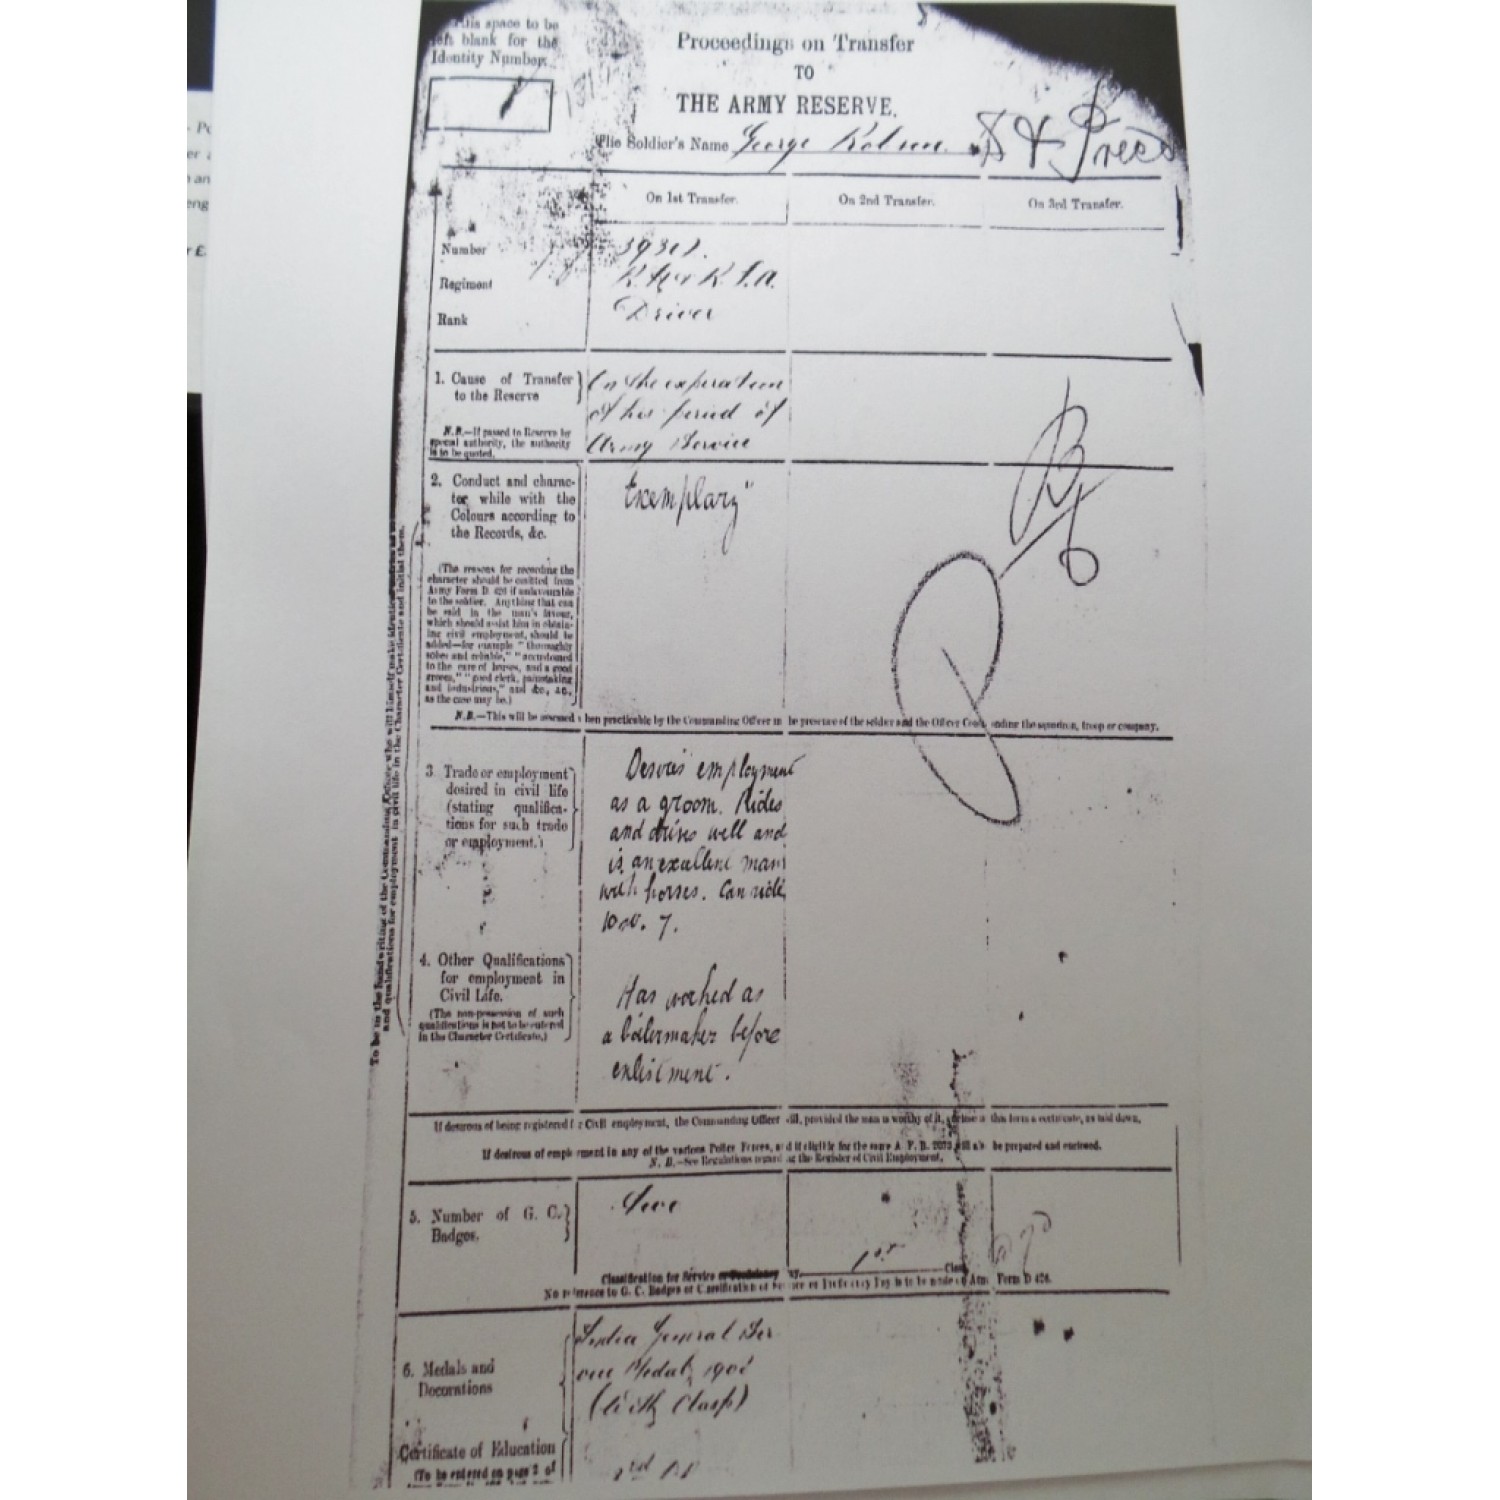 this space to be
left blank for the
Identity Number.
Proceedings on Transfer
TO
THE ARMY RESERVE.
The Soldier's Name George
On 1st Transfer.
On 2nd Transfer.
On 3rd Transfer.
Number
Regiment R.H & R.F.A.
Rank Driver
1. Cause of Transfer
to the Reserve
On the expiration
of his period of
Army Service
N.B.—If passed to Reserve by
special authority, the authority
is to be quoted.
2. Conduct and charac-
ter while with the
Colours according to
the Records, &c.
Exemplary"
(The reasons for recording the
character should be omitted from
Army Form D. 426 if unfavourable
to the soldier. Anything that can
be said in the man's favour,
which should assist him in obtain-
ing civil employment, should be
added—for example "thoroughly
sober and reliable," "accustomed
to the care of horses, and a good
groom," "good clerk, painstaking
and industrious," and &c., &c.,
as the case may be.)
N.B.—This will be assessed when practicable by the Commanding Officer in the presence of the soldier and the Officer Commanding the squadron, troop or company.
3 Trade or employment
desired in civil life
(stating qualifica-
tions for such trade
or employment.)
Desires employment
as a groom. Rides
and drives well and
is an excellent man
with horses. Can ride
4. Other Qualifications
for employment in
Civil Life.
(The non-possession of such
qualifications is not to be entered
in the Character Certificate.)
Has worked as
a boilermaker before
enlistment.
To be in the handwriting of the Commanding Officer who will himself make
and qualifications for employment in civil life in the Character Certificate and initial them.
If desirous of being registered for Civil employment, the Commanding Officer will, provided the man is worthy of it, enclose in this form a certificate, as laid down.
If desirous of employment in any of the various Police Forces, and if eligible for the same A. F. B. 2073 will also be prepared and enclosed.
N. B.—See Regulations regarding the Register of Civil Employment.
5. Number of G. C.
Badges.
1st
Classification for Service Class
No reference to G. C. Badges or Classification of Service or Proficiency Pay is to be made on Army Form D 426.
6. Medals and
Decorations
India General Ser
vice Medal, 190
(with Clasp)
Certificate of Education
(To be entered on page 2 of